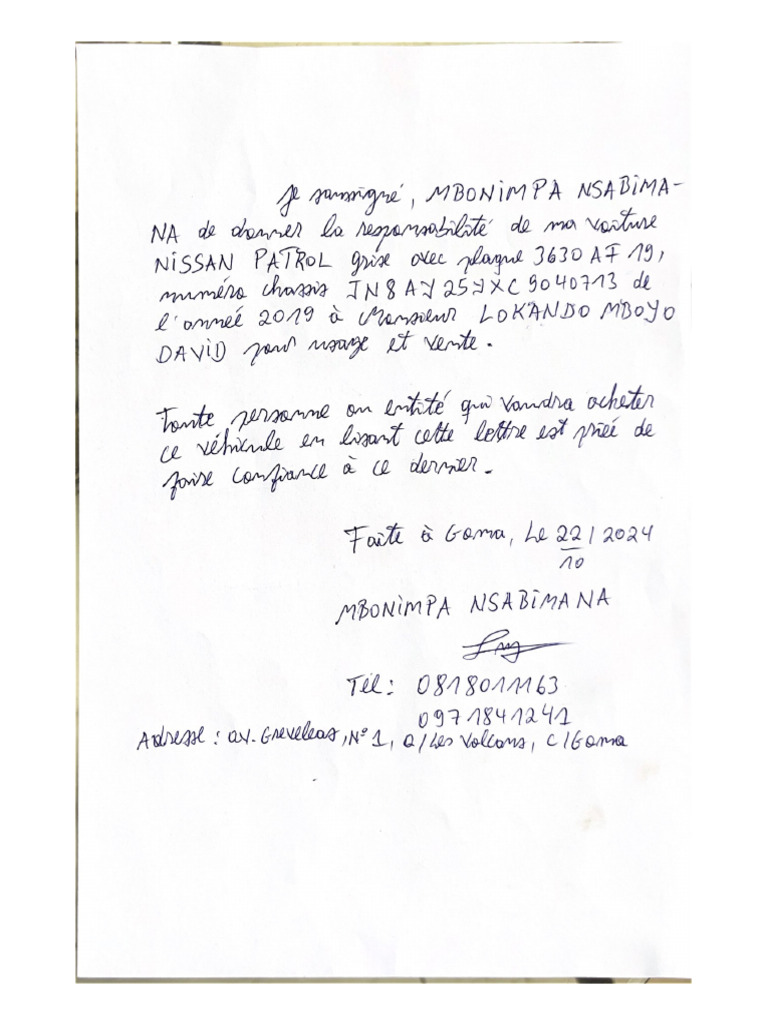 Je soussigné, MBONIMPA NSABIMA-
NA de donner la responsabilité de ma voiture
NISSAN PATROL grise avec plaque 3630 AF 19,
numéro chassis JN8AY25YXC9040713 de
l'anneé 2019 à Monsieur LOKANDO MBOYO
DAVID pour usage et vente.
Toute personne ou entité qui voudra acheter
ce véhicule en lisant cette lettre est priée de
faire confiance à ce dernier.
Faite à Goma, Le 22/2024
10
MBONIMPA NSABIMANA
Tél: 0818011163
0971841241
Adresse: av. Greveleas, N° 1, Q/Les Volcans, C/Goma